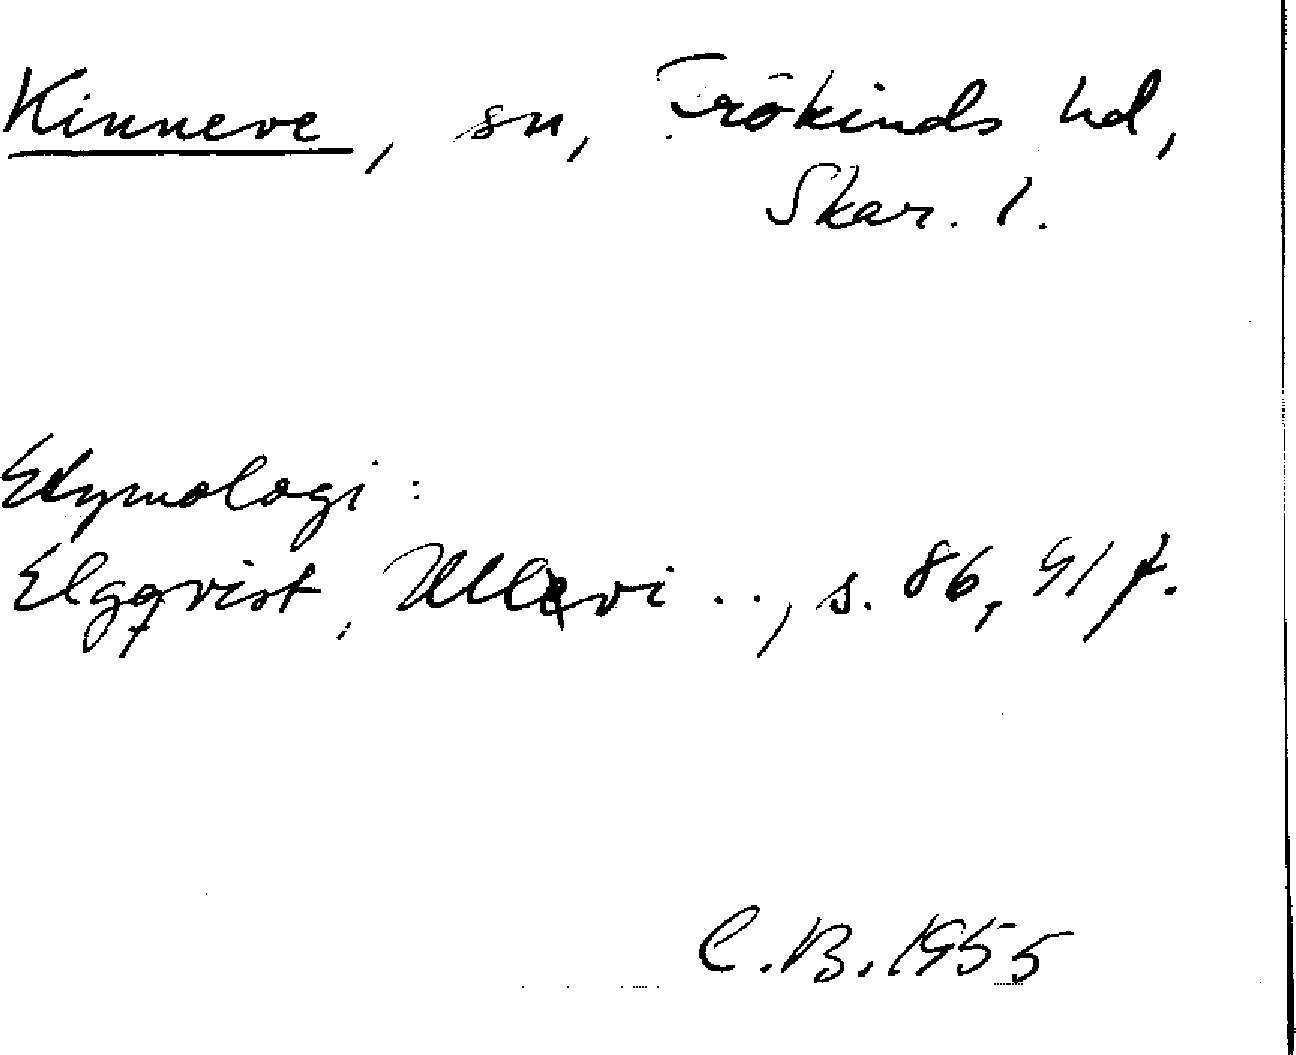 Kinneve, sn, Frökinds hd,
Skar. l.
Etymologi:
Elgqvist, Ullavi .., s. 86, 91 f.
C.B. 1955